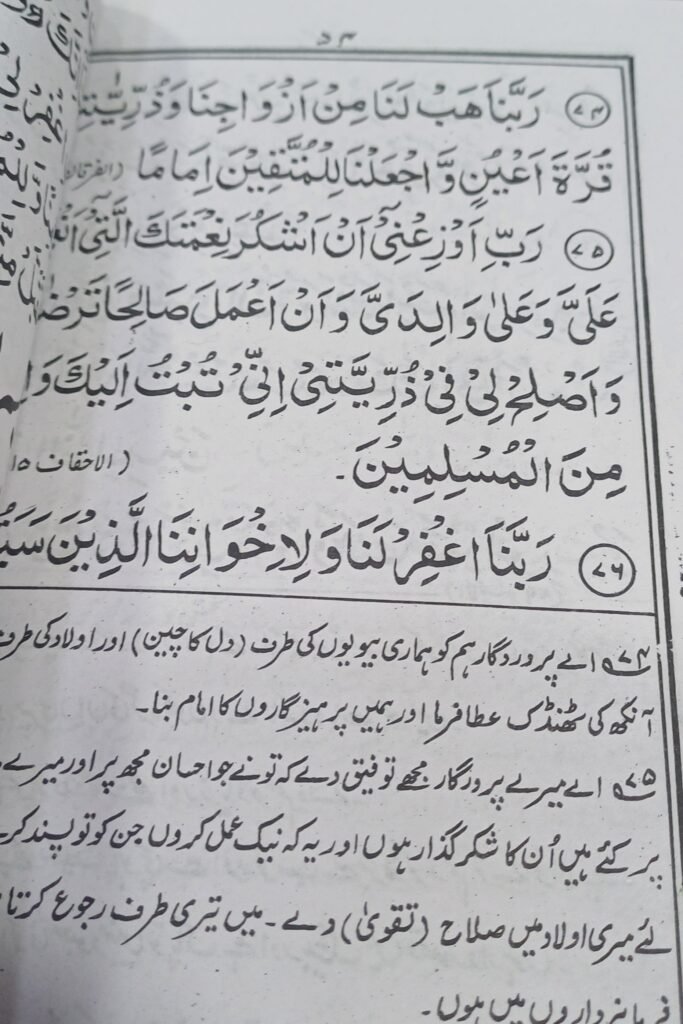 ۵۴
۷۴ رَبَّنَا هَبْ لَنَا مِنْ اَزْوَاجِنَا وَذُرِّيّٰتِنَا
قُرَّةَ اَعْيُنٍ وَّ اجْعَلْنَا لِلْمُتَّقِيْنَ اِمَامًا (الفرقان
۷۵ رَبِّ اَوْزِعْنِیْٓ اَنْ اَشْكُرَ نِعْمَتَكَ الَّتِیْٓ
عَلَیَّ وَعَلٰی وَالِدَیَّ وَاَنْ اَعْمَلَ صَالِحًا تَرْضٰ
وَاَصْلِحْ لِیْ فِیْ ذُرِّيَّتِیْ اِنِّیْ تُبْتُ اِلَيْكَ وَ
مِنَ الْمُسْلِمِيْنَ۔ (الاحقاف ۱۵
۷۶ رَبَّنَا اغْفِرْ لَنَا وَلِاِخْوَانِنَا الَّذِيْنَ
۷۴ اے پروردگار ہم کو ہماری بیویوں کی طرف (دل کا چین) اور اولاد کی طرف
آنکھ کی ٹھنڈک عطا فرما اور ہمیں پرہیزگاروں کا امام بنا۔
۷۵ اے میرے پروزگار مجھے توفیق دے کہ تونے جو احسان مجھ پر اور میرے
پر کئے ہیں اُن کا شکر گذار ہوں اور یہ کہ نیک عمل کروں جن کو تو پسند کر
لئے میری اولاد میں صلاح (تقویٰ) دے۔ میں تیری طرف رجوع کرتا
فرمانبرداروں میں ہوں۔